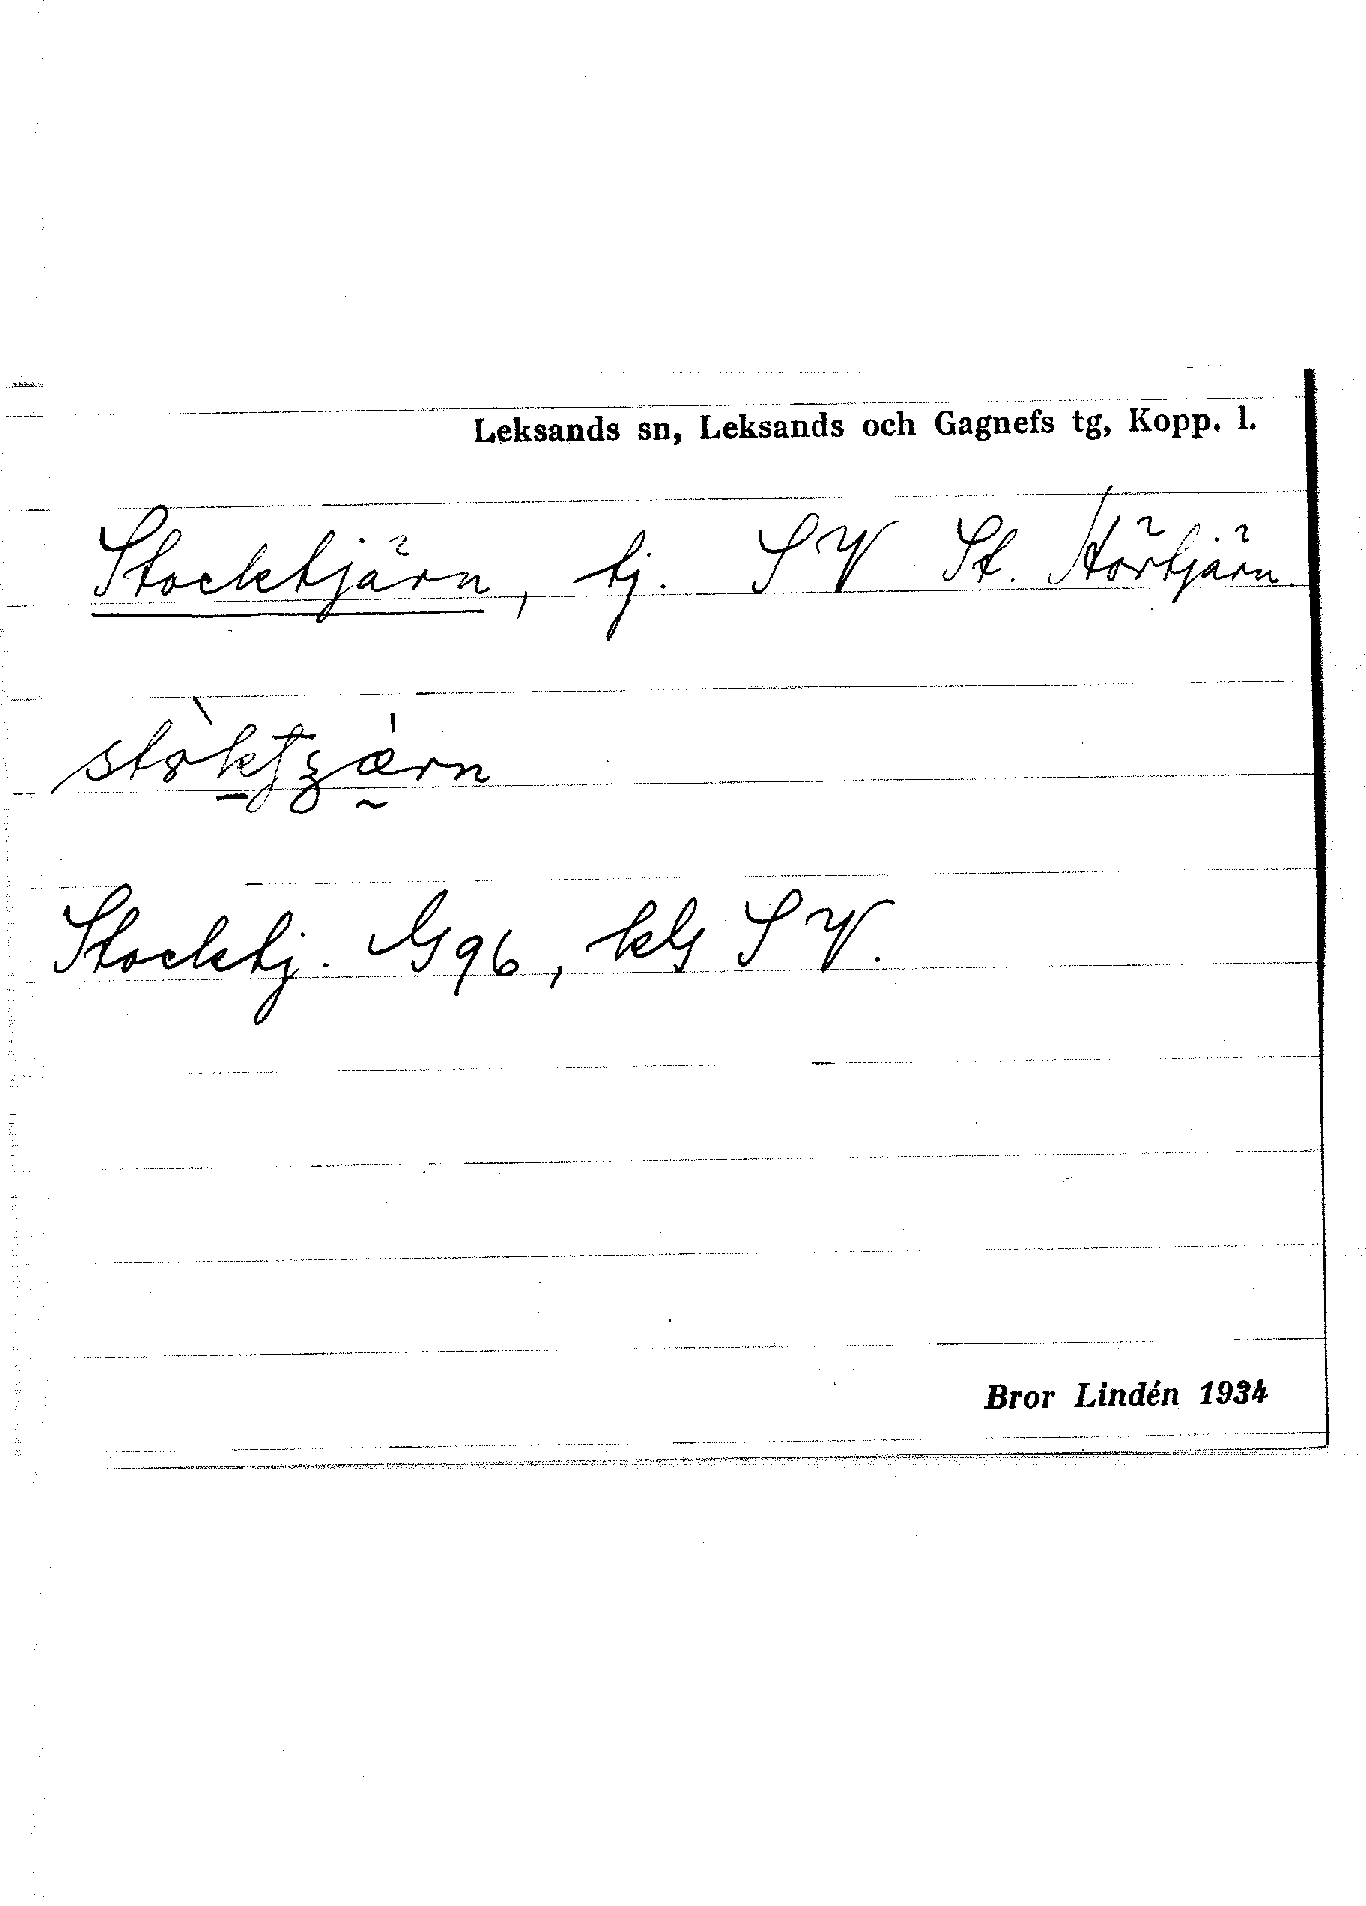 Leksands sn, Leksands och Gagnefs tg, Kopp. l.
Stocktjärn, tj. SV St. Hörtjärn.
Stocktj. G96, kly SV.
Bror Lindén 1934